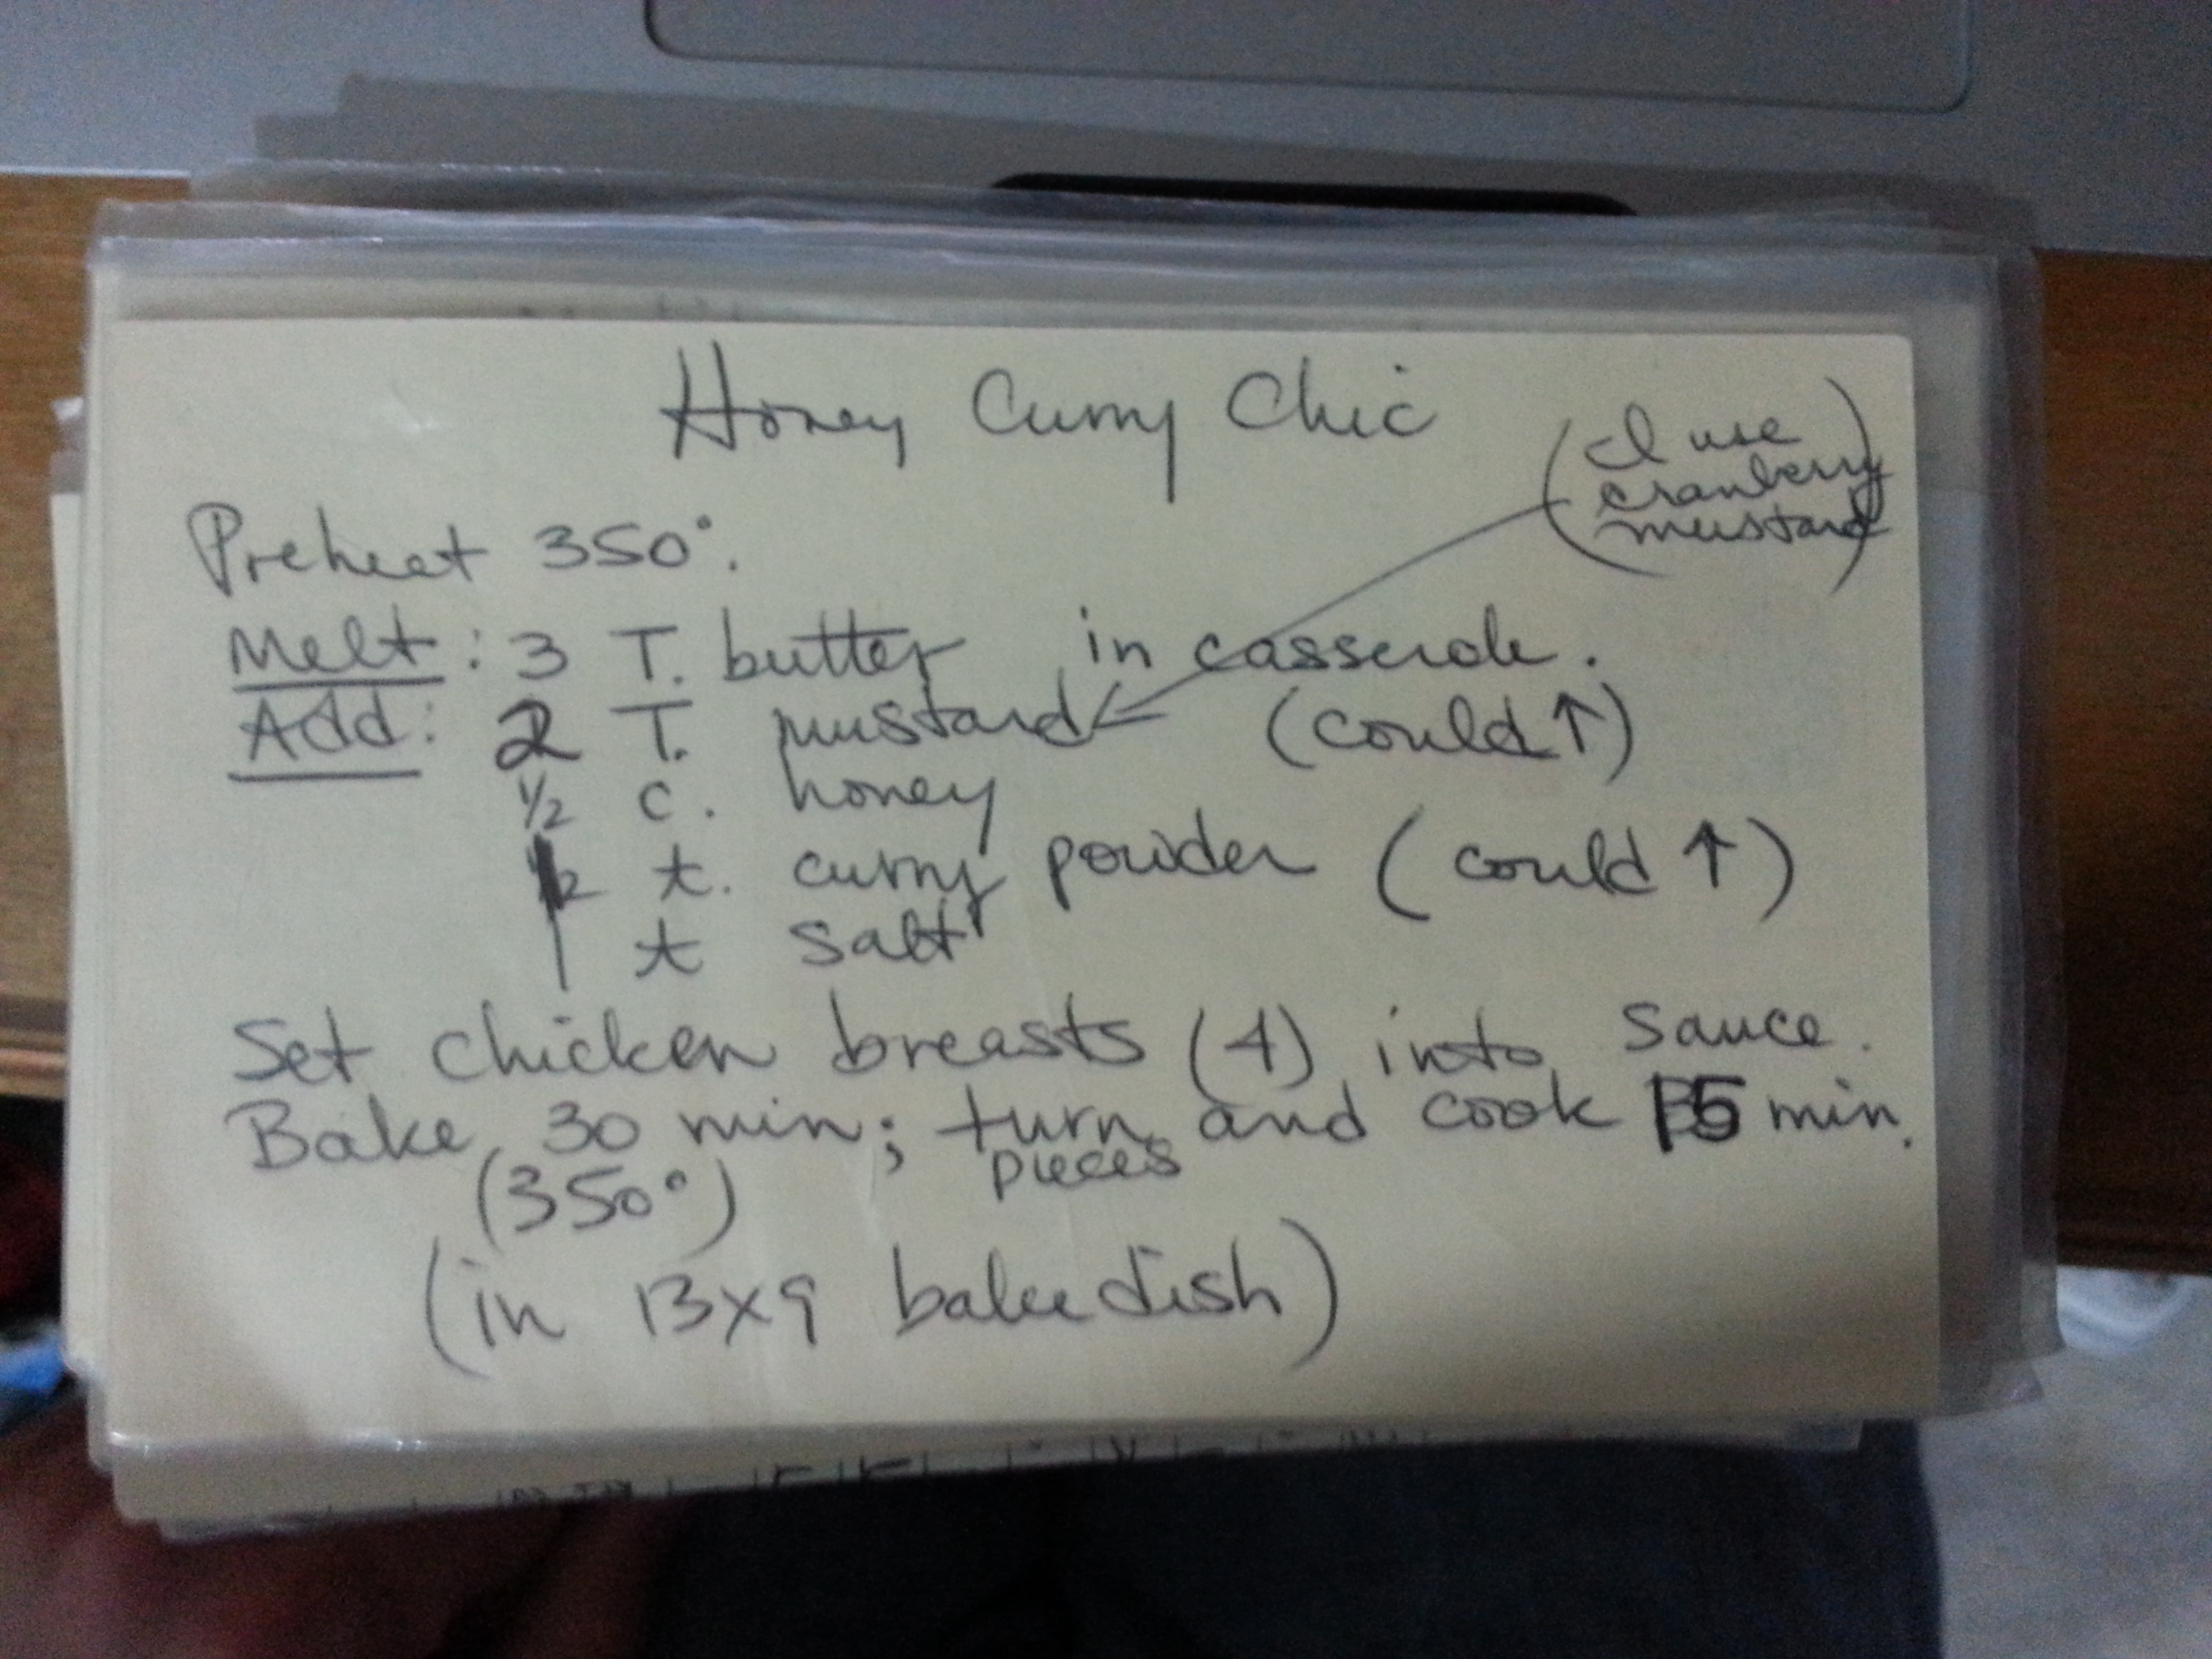 Honey Curry Chic
(I use
cranberry
mustard)
Preheat 350°.
Melt: 3 T. butter in casserole.
Add: 2 T. mustard (could ↑)
1/2 c. honey
t. curry powder (could ↑)
1 t salt
Set chicken breasts (4) into sauce.
Bake 30 min; turn and cook 15 min.
pieces
(350°)
(in 13x9 bake dish)